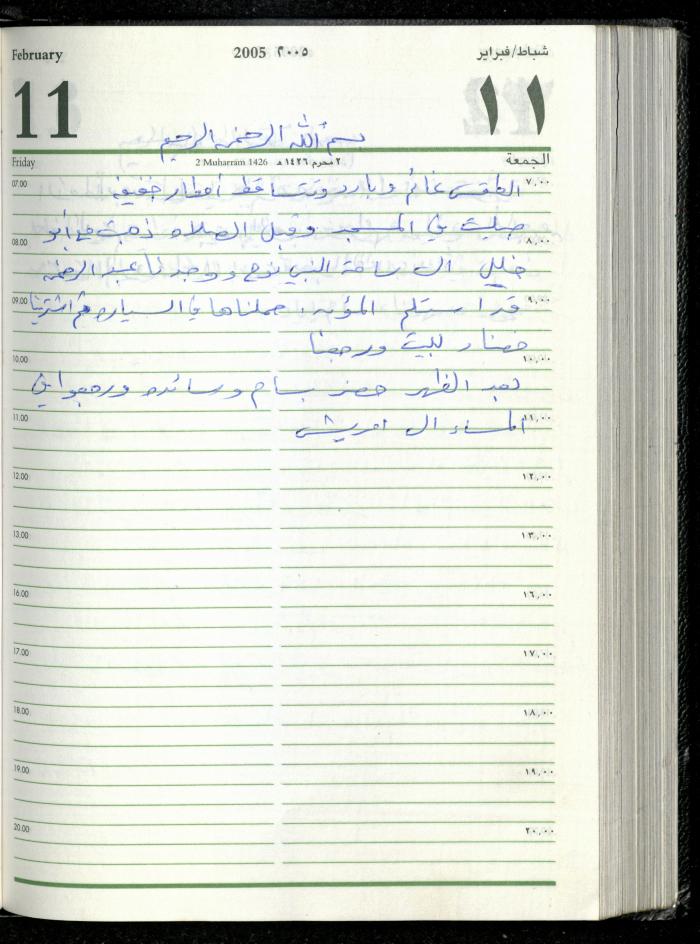 February 2005 ٢٠٠٥ شباط/فبراير
11 ١١
بسم الله الرحمن الرحيم
Friday 2 Muharram 1426 ٢ محرم ١٤٢٦ هـ الجمعة
07.00 الطقس غائم وبارد وتتساقط أمطار خفيفة ٧,٠٠
صليت في المسجد وقبل الصلاه ذهبت مع أبو
08.00 ٨,٠٠
خليل الى ساحة النبي نوح ووجدنا عبد الرحمن
09.00 قد استلم المؤنه، حملناها في السياره ثم اشترينا ٩,٠٠
خضار للبيت ورجعنا
10.00 ١٠,٠٠
بعد الظهر حضر بسام وسائده ورجعوا في
11.00 ١١,٠٠
المساء الى
12.00 ١٢,٠٠
13.00 ١٣,٠٠
16.00 ١٦,٠٠
17.00 ١٧,٠٠
18.00 ١٨,٠٠
19.00 ١٩,٠٠
20.00 ٢٠,٠٠